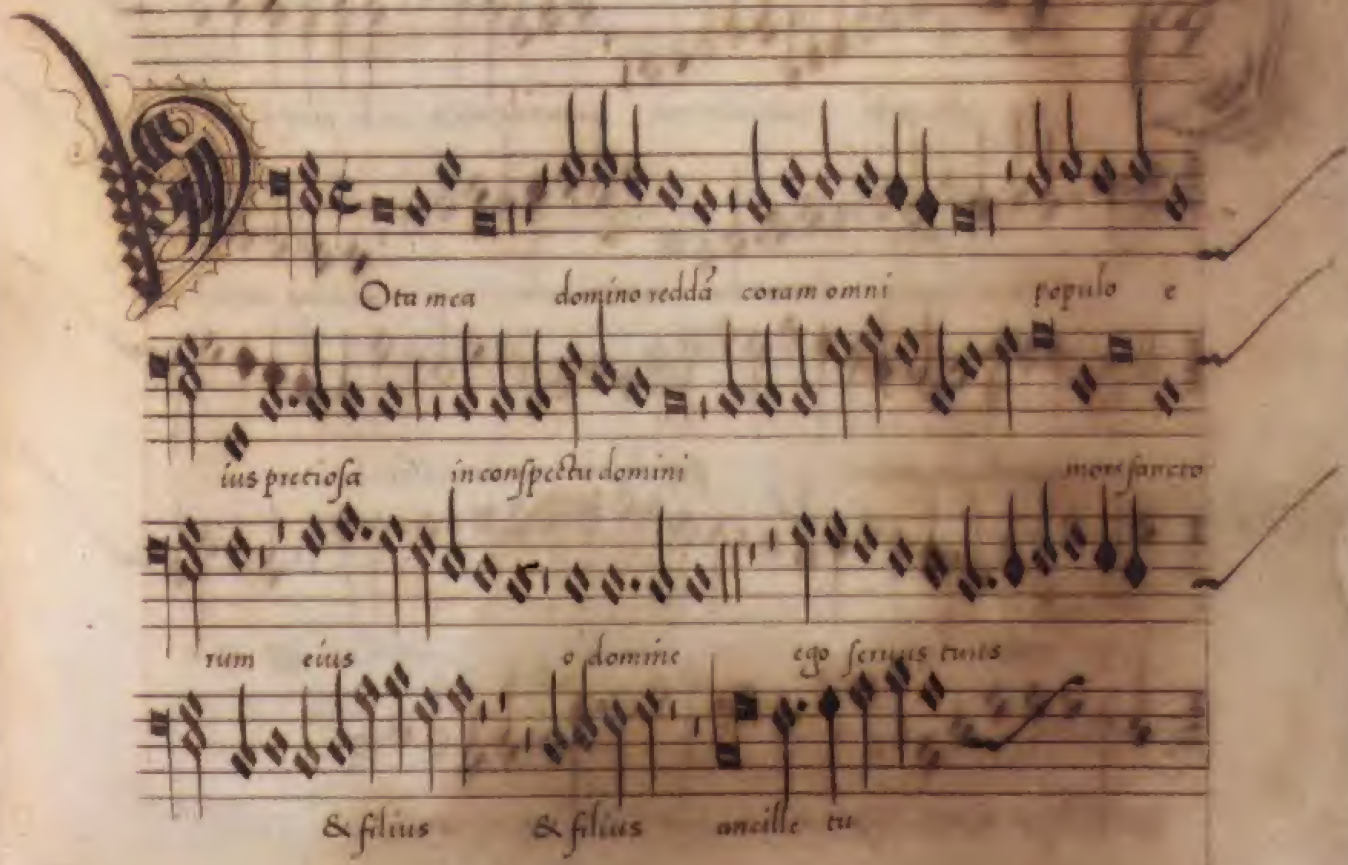 VOta mea domino reddā coram omni populo e
ius pretiosa in conspectu domini mors sancto
rum eius o domine ego seruus tuus
& filius & filius ancille tu